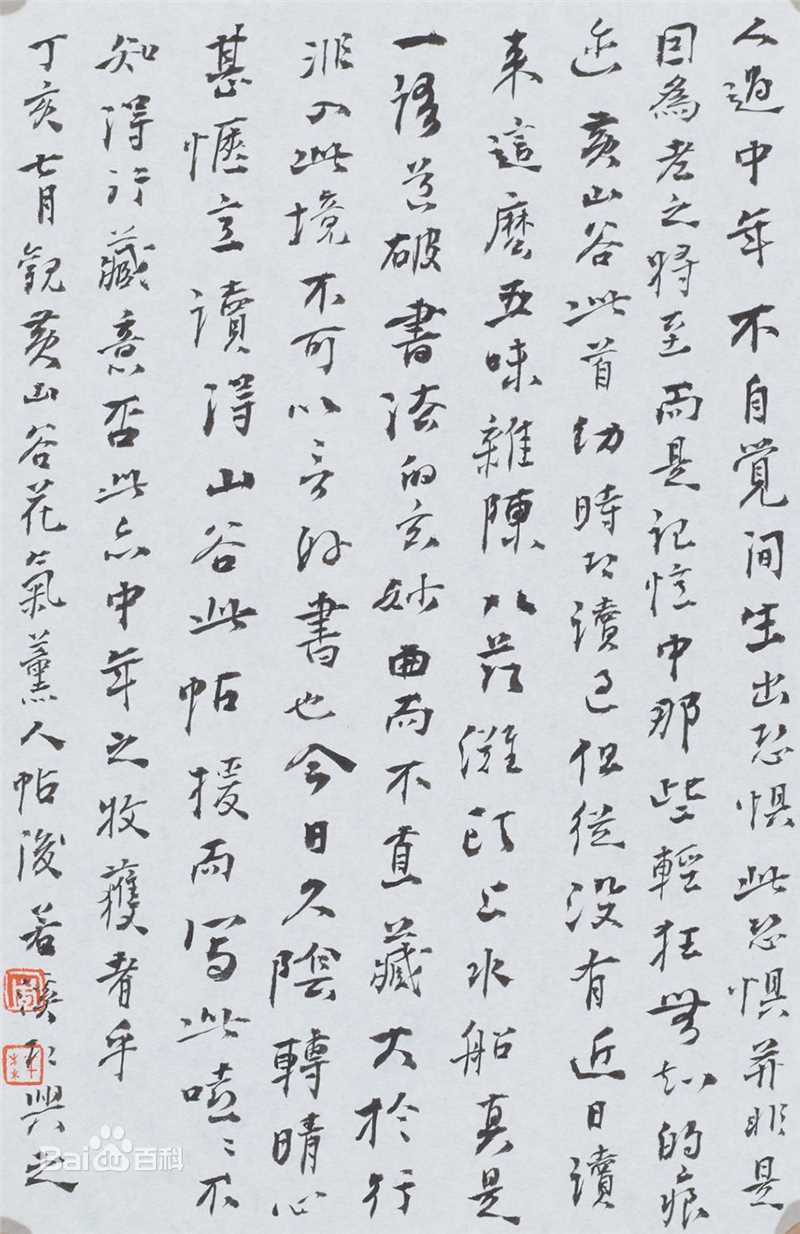 人過中年不自覚间生出恐惧此恐惧并非是
因為老之将至而是记憶中那些輕狂無知的痕
迹黄山谷此首幼時攻讀過但從没有近日讀
来這麼五味雜陳八节灘頭上水船真是
一語道破書法的玄妙曲而不直藏大於行
非入此境不可以言好書也今日久陰轉晴心
甚愜意讀得山谷此帖援而写此嘻嘻不
知得行藏意否此亦中年之收獲者乎
丁亥七月觀黄山谷花氣薰人帖後若溪 興之
Bai百科